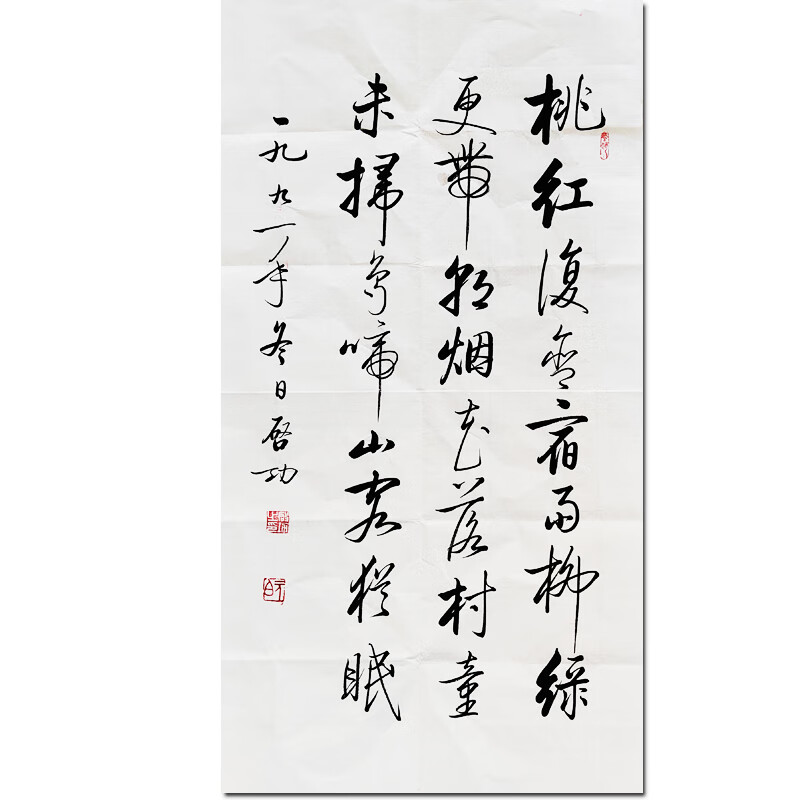 桃紅復含宿雨柳綠
更帶朝烟花落村童
未掃鳥啼山客猶眠
一九九一年冬日啓功